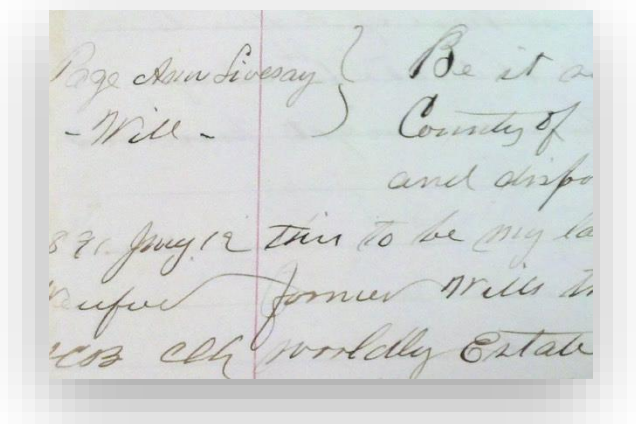 Page Ann Livesay } Be it
- Will - County of
and dispo
891. Jany. 12 this to be my la
former Wills
worldly Estate